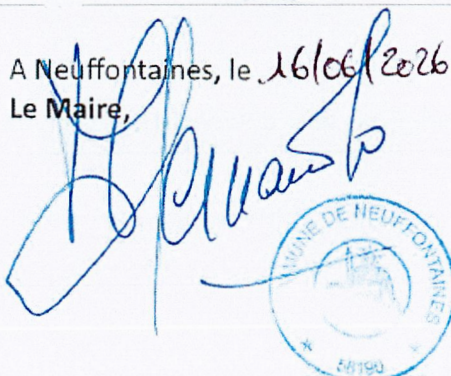 A Neuffontaines, le 16/06/2026
Le Maire,
MUNE DE NEUFFONTAINES
58190